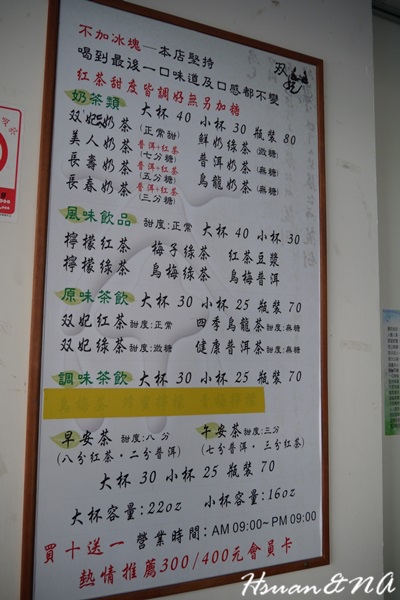 不加冰塊—本店堅持
喝到最後一口味道及口感都不變
紅茶甜度皆調好無另加糖
双妃
奶茶類 大杯 40 小杯 30 瓶裝 80
双妃奶茶(正常甜) 鮮奶綠茶(微糖)
美人奶茶 普洱+紅茶(七分糖) 普洱奶茶(無糖)
長壽奶茶 普洱+紅茶(五分糖) 烏龍奶茶(無糖)
長春奶茶 普洱+紅茶(三分糖)
風味飲品 甜度:正常 大杯 40 小杯 30
檸檬紅茶 梅子綠茶 紅茶豆漿
檸檬綠茶 烏梅綠茶 烏梅普洱
原味茶飲 大杯 30 小杯 25 瓶裝 70
双妃紅茶甜度:正常 四季烏龍茶甜度:無糖
双妃綠茶甜度:微糖 健康普洱茶甜度:無糖
調味茶飲 大杯 30 小杯 25 瓶裝 70
早安茶 甜度:八分 午安茶甜度:三分
(八分紅茶·二分普洱) (七分普洱·三分紅茶)
大杯 30 小杯 25 瓶裝 70
大杯容量:22oz 小杯容量:16oz
買十送一 營業時間:AM 09:00~PM 09:00
熱情推薦300/400元會員卡
Hsuan&NA